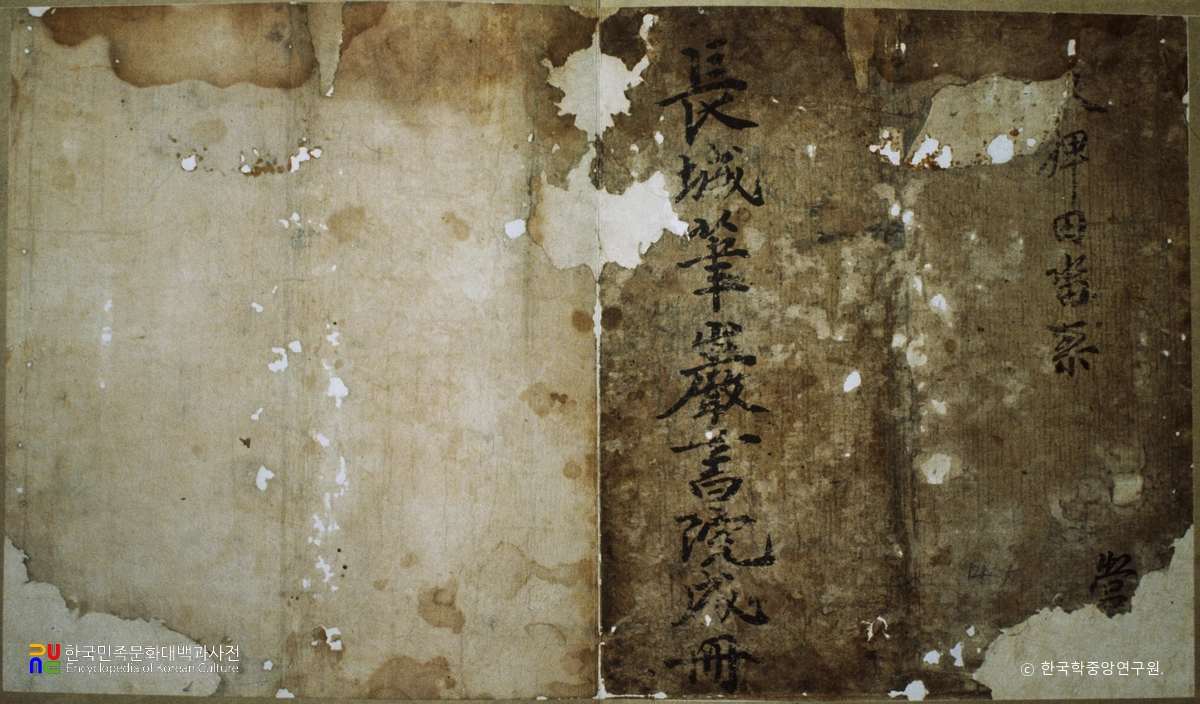 長城筆巖書院成冊
田畓案
營
한국민족문화대백과사전
Encyclopedia of Korean Culture
ⓒ 한국학중앙연구원.